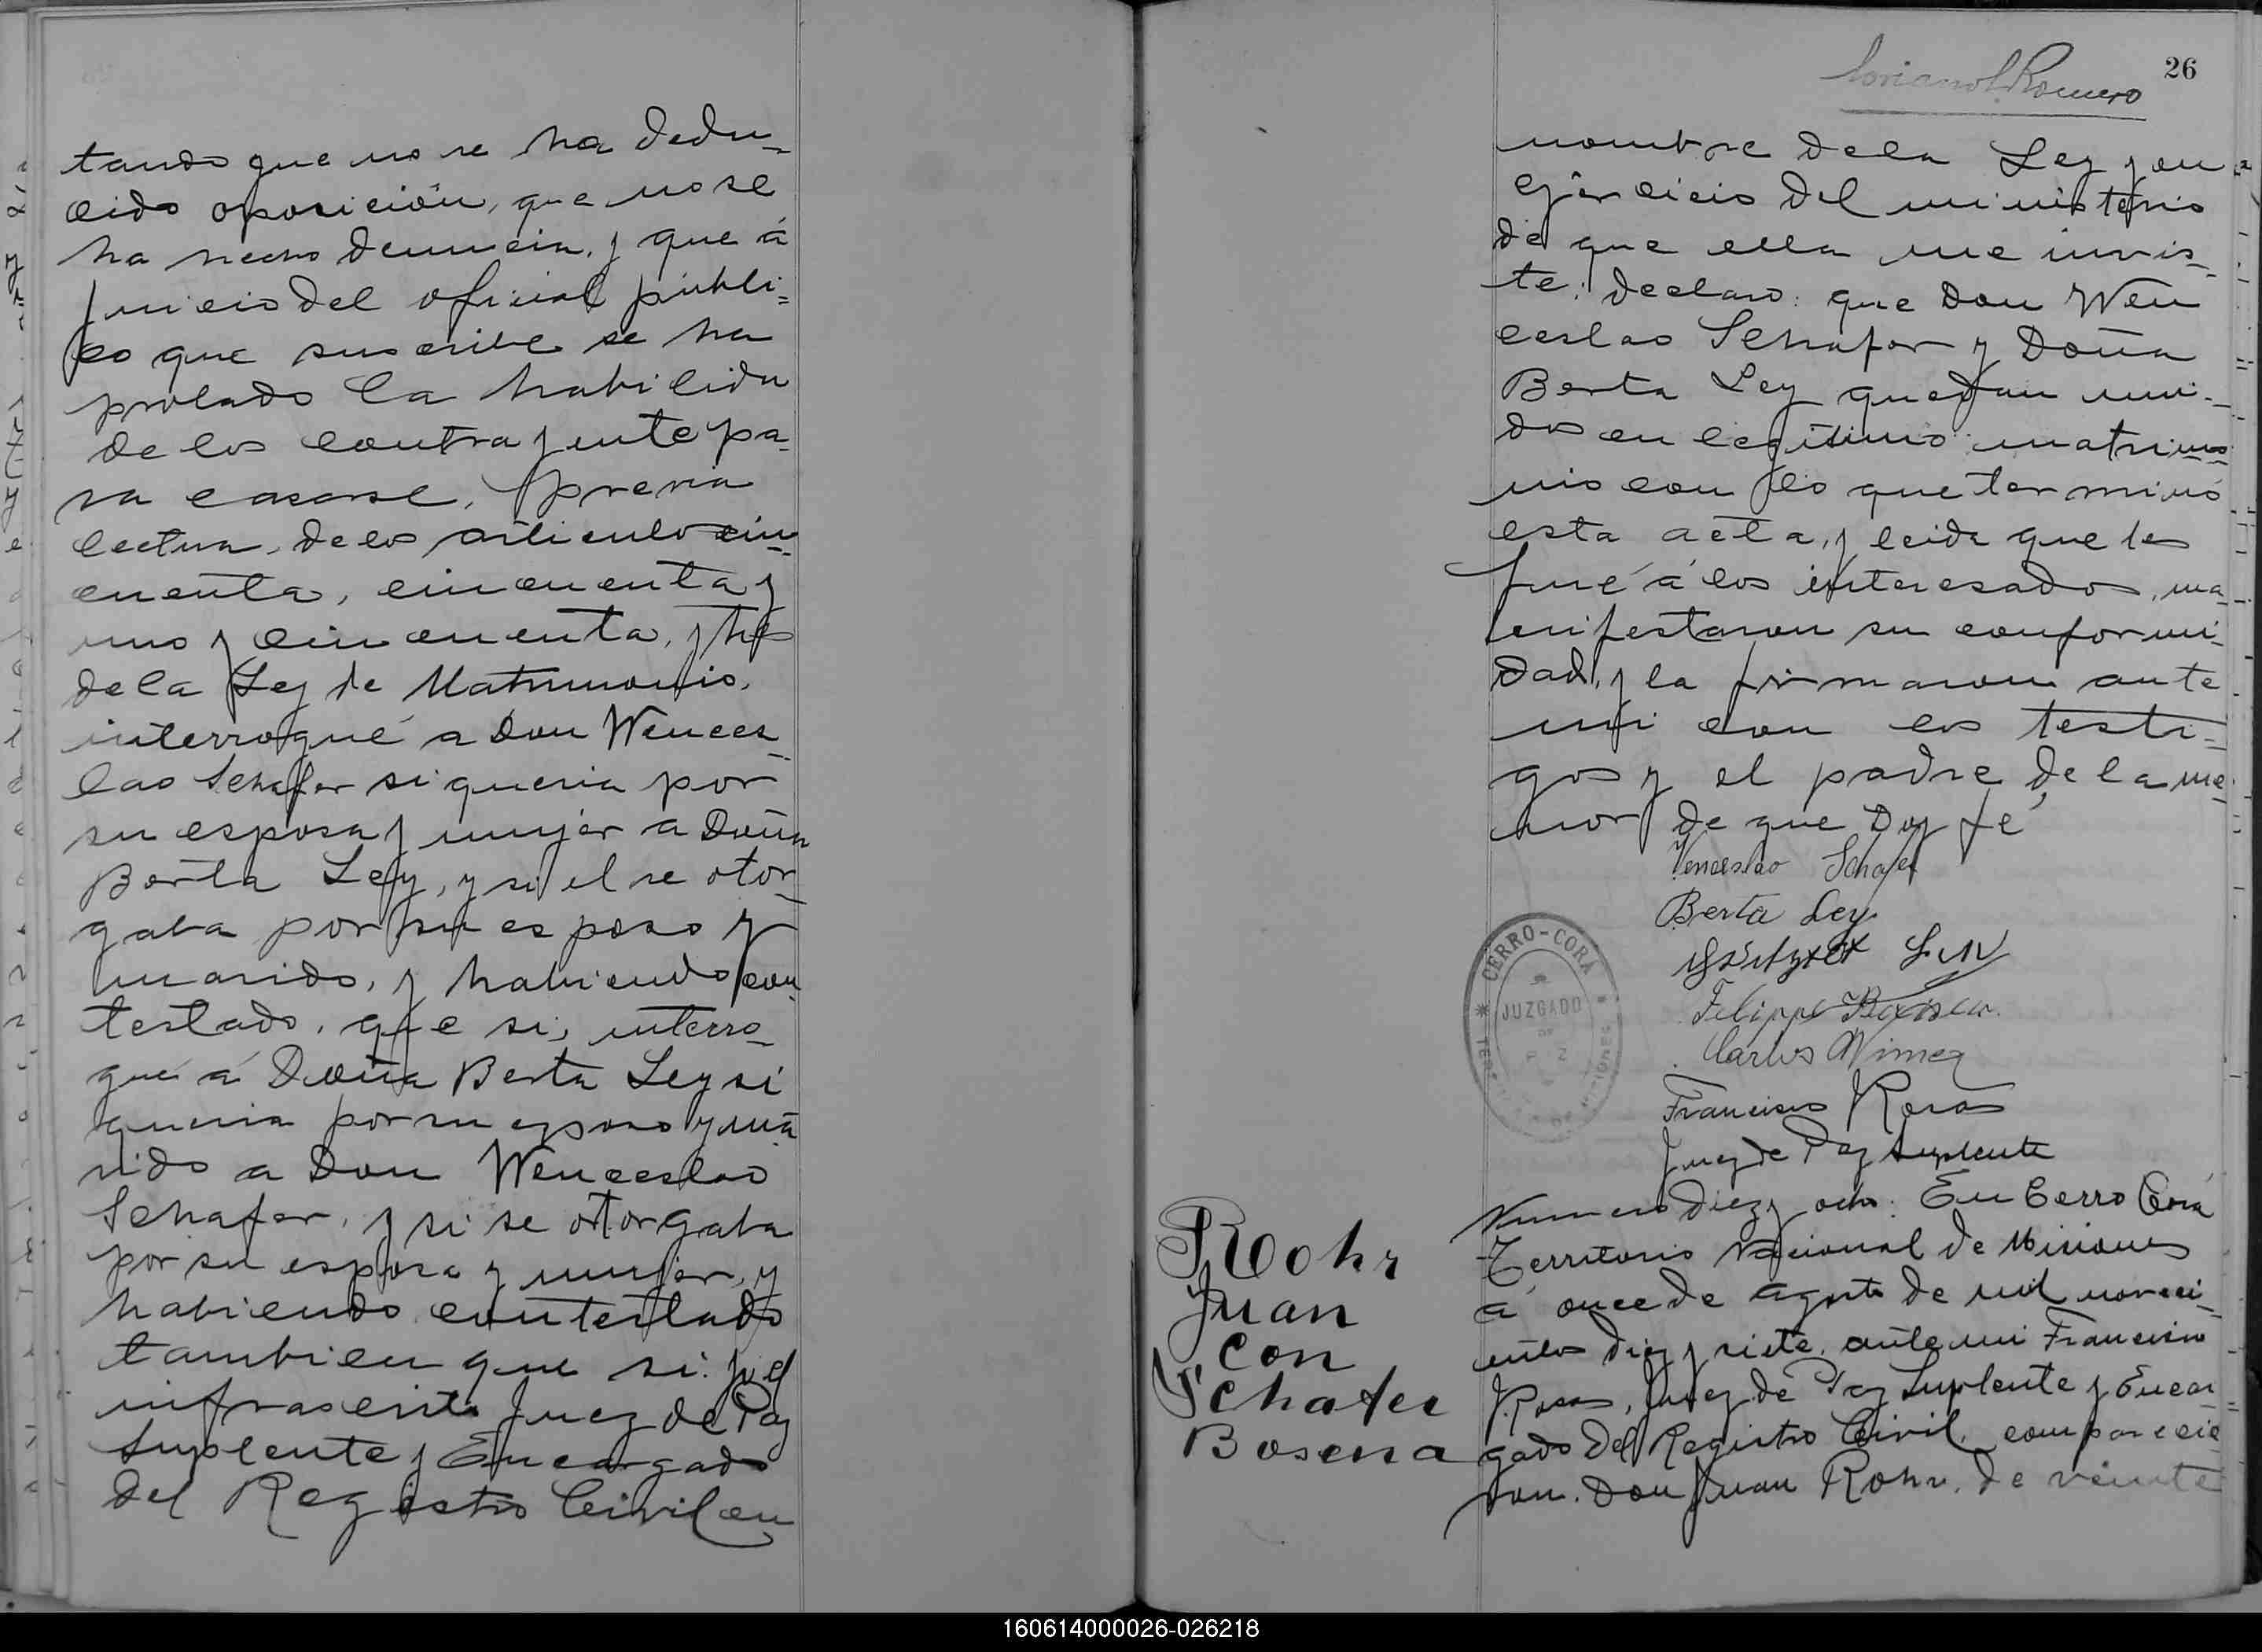 tando que no se ha dedu-
cido oposición, que no se
ha hecho denuncia, y que á
juicio del oficial públi-
co que suscribe se ha
probado la habilida
de los contrayente pa-
ra casarse, previa
lectura, de los articulo cin-
cuenta, cincuenta y
uno y cincuenta, y tres
de la Ley de Matrimonio,
interrogué a Don Wences-
lao Schafer si queria por
su esposa y mujer a Doña
Berta Ley, y si el se otor-
gaba por su esposo y
marido, y habiendo con-
testado, que si, interro-
gué á Doña Berta Ley si
queria por su esposo y ma
rido a Don Wenceslao
Schafer, y si se otorgaba
por su esposa y mujer, y
habiendo contestado
tambien que si. yo el
infrascrito Juez de Paz
Suplente y Encargado
del Registro Civil en
26
Romero
nombre de la Ley y en
ejercicio del ministerio
de que ella me invis-
te, declaro: que Don Wen
ceslao Schafer y Doña
Berta Ley quedan uni-
dos en legitimo matrimo-
nio con lo que terminó
esta acta, y leida que les
fué á los interesados, ma-
nifestaron su conformi-
dad, y la firmaron ante
mi con los testi-
gos y el padre de la me-
nor de que Doy fé
Venceslao Schafer
Berta Ley
Felippe
Carlos
Francisco Rosas
Juez de Paz Suplente
CERRO-CORÁ
JUZGADO
DE
P Z
MISIONES
Rohr
Juan
con
Schafer
Bosena
Numero Diez y ocho. En Cerro Corá
Territorio Nacional de Misiones
á once de agosto de mil noveci-
entos diez y siete, ante mi Francisco
Rosas, Juez de Paz Suplente y Encar
gado del Registro Civil, comparecie
ron. Don Juan Rohr, de veinte
160614000026-026218